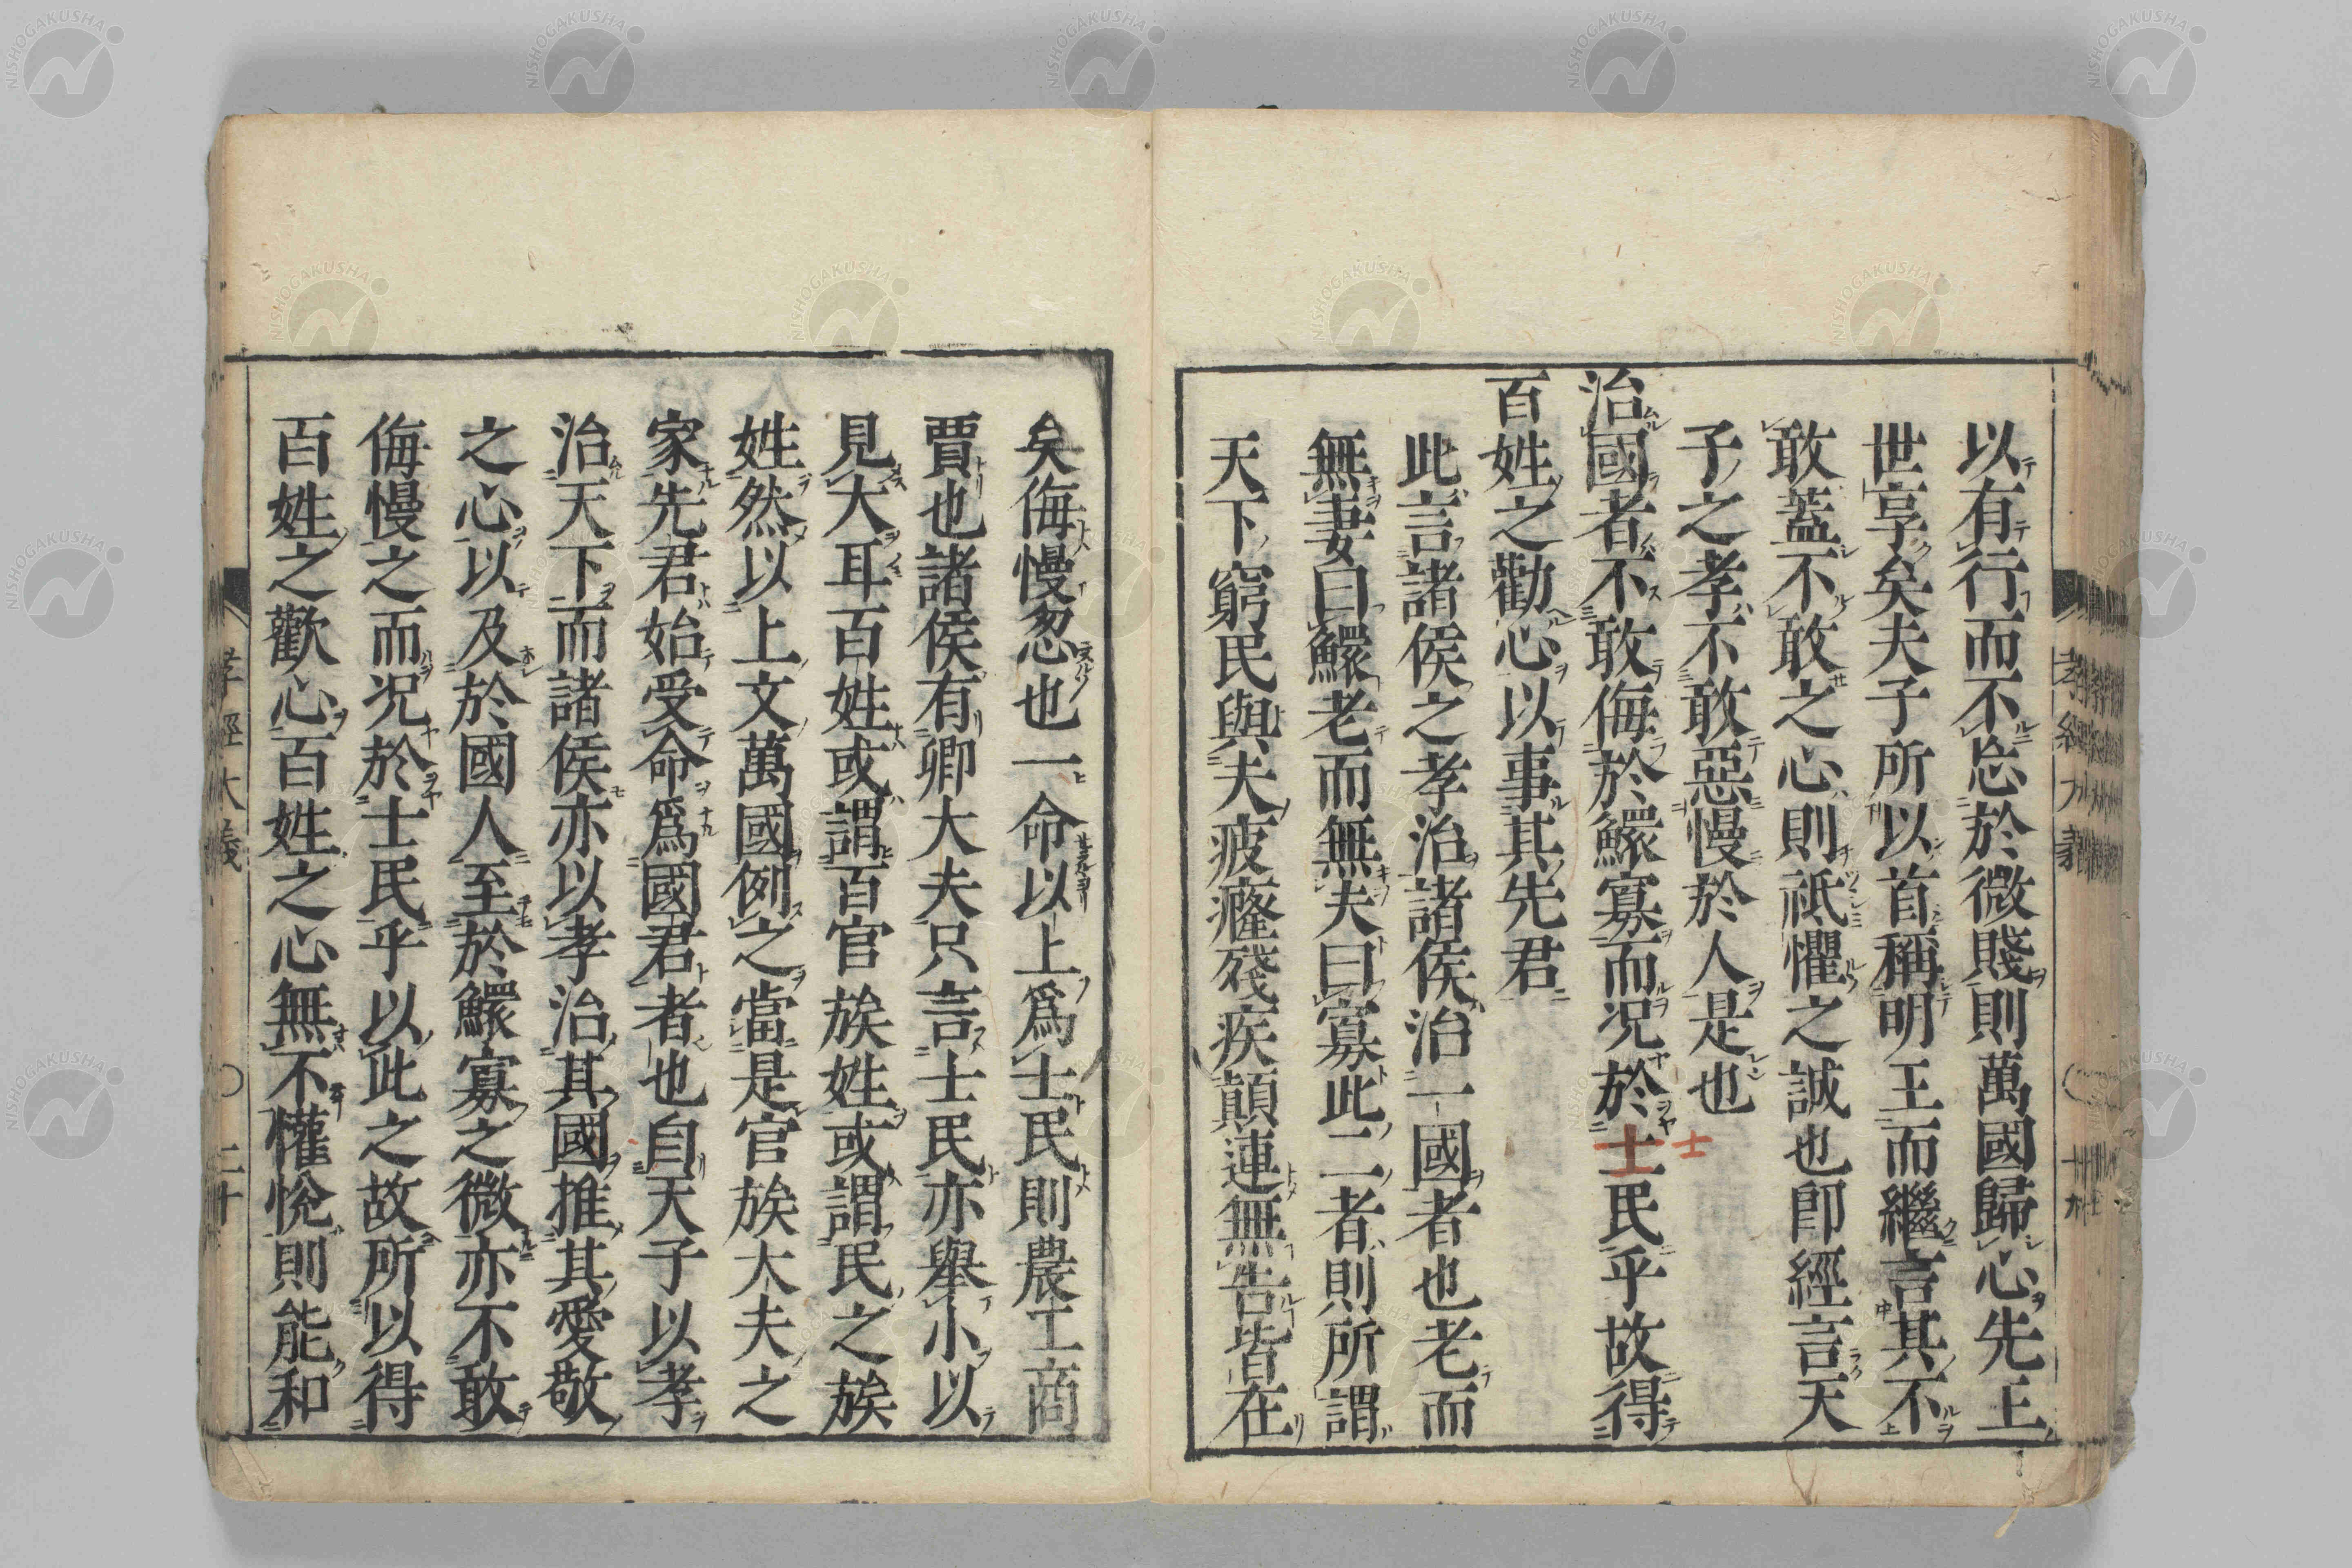 以有行而不忘於微賤則萬國歸心先上
世享矣夫子所以首稱明王而繼言其不
敢蓋不敢之心則祗懼之誠也即經言天
子之孝不敢惡慢於人是也
治國者不敢侮於鰥寡而况於士民乎故得
士
百姓之勸心以事其先君
此言諸侯之孝治諸侯治一國者也老而
無妻曰鰥老而無夫曰寡此二者則所謂
天下窮民與夫疲癃殘疾顛連無告皆在
矣侮慢忽也一命以上爲士民則農工商
賈也諸侯有卿大夫只言士民亦舉小以
見大耳百姓或謂百官族姓或謂民之族
姓然以上文萬國例之當是官族大夫之
家先君始受命爲國君者也自天子以孝
治天下而諸侯亦以孝治其國推其愛敬
之心以及於國人至於鰥寡之微亦不敢
侮慢之而况於士民乎以此之故所以得
百姓之歡心百姓之心無不懽悅則能和
孝經大義 〇 二十